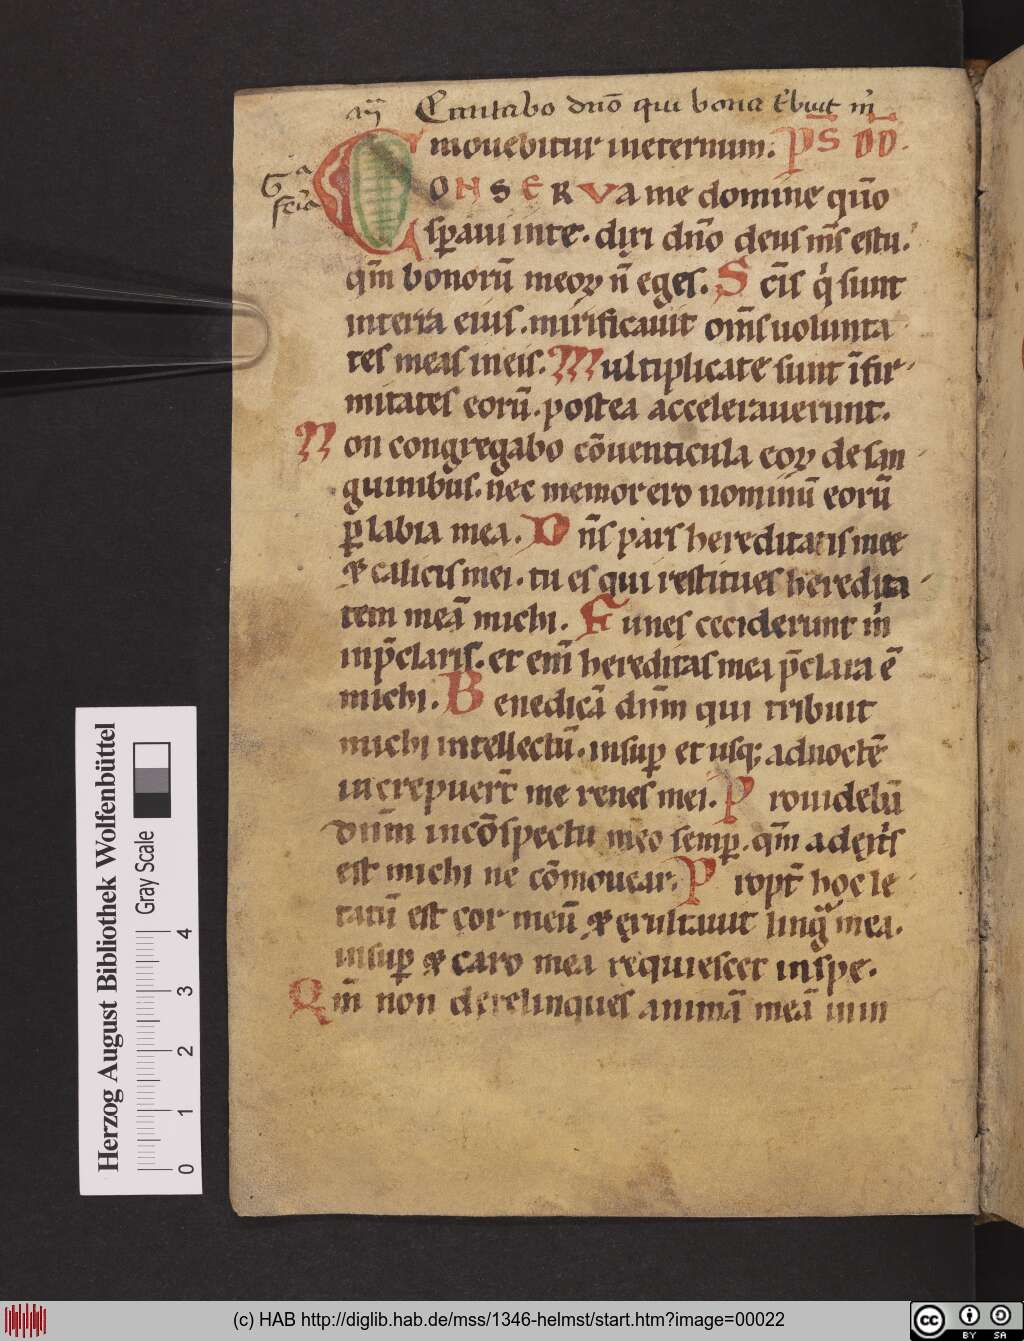 añ Cantabo dn̄o qui bona t'buit m̄
mouebitur ineternum. PS̄ DD̄.
CONSERVA me domine qm̄o
sꝑaui inte. dixi dn̄o deus m̄s es tu.
qm̄ bonorū meoꝝ n̄ eges. S cīs q̇ sunt
interra eius. mirificauit om̄s uolunta
tes meas ineis. Multiplicate sunt īfir
mitates eorū. postea accelerauerunt.
Non congregabo cōuenticula eoꝝ de san
guinibus. nec memor ero nominū eorū
ꝑ labia mea. Dn̄s pars hereditatis mee
⁊ calicis mei. tu es qui restitues heredita
tem meā michi. Funes ceciderunt m̄
inp̄claris. et em̄ hereditas mea p̄clara ē
michi. Benedicā dn̄m qui tribuit
michi intellectū. insuꝑ et usq; adnoctē
increpuert̄ me renes mei. Prouidebā
dn̄m incōspectu meo semꝑ. qm̄ adext̄s
est michi ne cōmouear. Propt̄ hoc le
tatū est cor meū ⁊ exultauit lingᵃ mea.
insuꝑ ⁊ caro mea requiescet inspe.
Qm̄ non derelinques animā meā inin
Herzog August Bibliothek Wolfenbüttel
Gray Scale
0 1 2 3 4
(c) HAB http://diglib.hab.de/mss/1346-helmst/start.htm?image=00022
cc BY SA